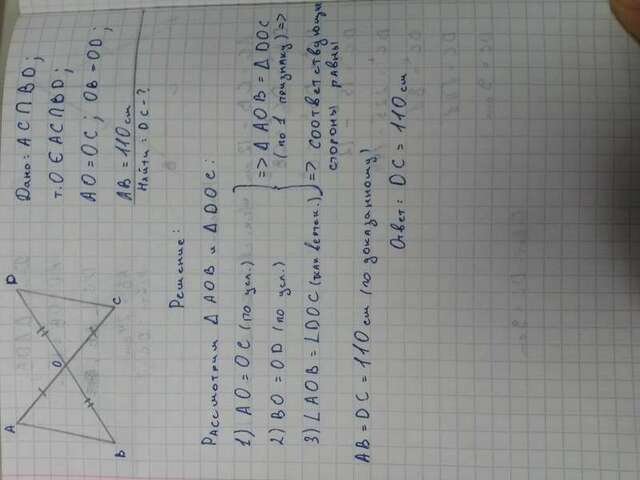 A
D
O
B
C
Дано: AC∩BD;
т.O ∈ AC∩BD;
AO=OC; OB=OD;
AB = 110 см
Найти: DC-?
Решение:
Рассмотрим △AOB и △DOC:
1) AO=OC (по усл.)
2) BO=OD (по усл.)
3) ∠AOB=∠DOC (как вертик.)
=> △AOB=△DOC
(по 1 признаку) =>
=> соответствующие
стороны равны
AB=DC=110 см (по доказанному)
Ответ: DC=110 см